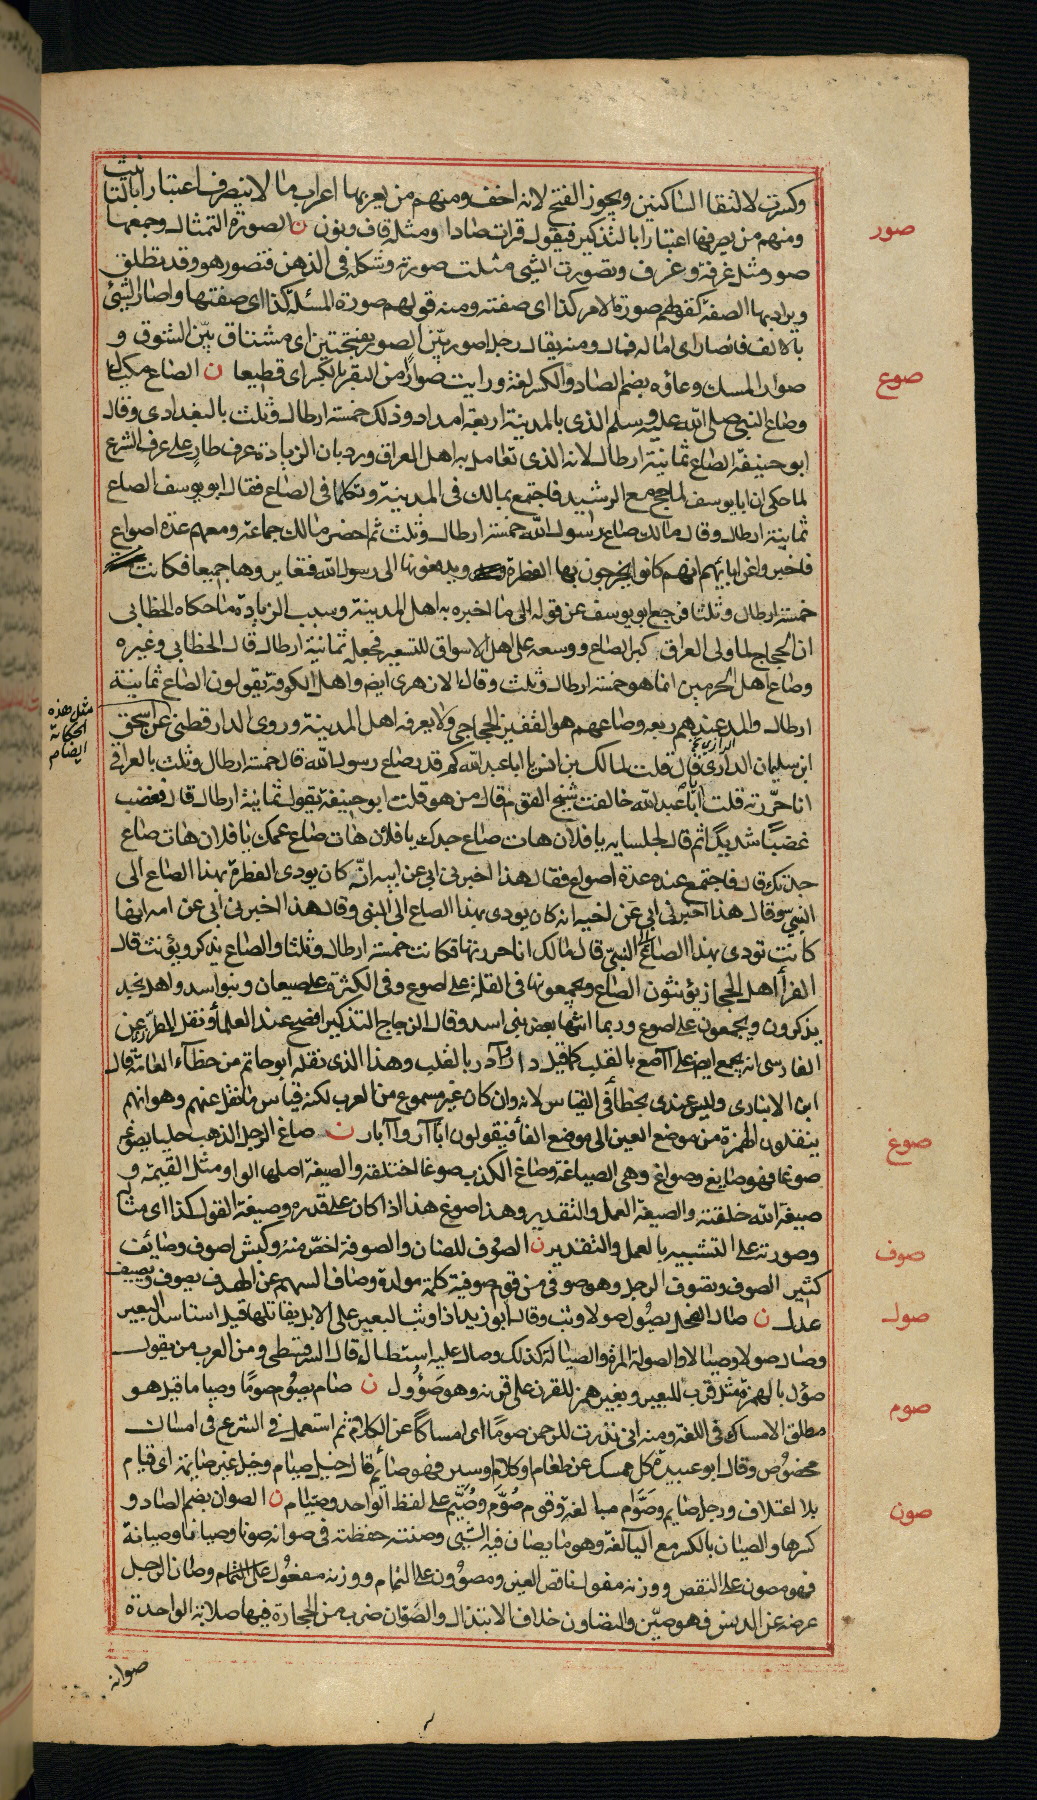 وكسرت لالتقا الساكنين ويجوز الفتح لانه اخف ومنهم من يعربها اعراب ما لا ينصرف اعتبارا بالتانيث
ومنهم من يصرفها اعتبارا بالتذكير فيقول قرات صادا ومثله قاف ونون ن الصورة التمثال وجمعها
صور مثل غرفة وغرف وتصورت الشي مثلت صورته وشكله في الذهن فتصور هو وقد تطلق
ويراد بها الصفة كقولهم صورة الامر كذا اى صفته ومنه قولهم صورة المسئلة كذا اى صفتها واصار الشئ
بالالف فانصار اى اماله فمال ومنه يقال رجل اصور بيّن الصور بفتحتين اى مشتاق بيّن الشوق و
صوار المسك وعاؤه بضم الصاد والكسر لغة ورايت صوارا من البقر بالكسر اى قطيعا ن الصاع مكيال
وصاع النبي صلى الله عليه وسلم الذى بالمدينة اربعة امداد وذلك خمسة ارطال وثلث بالبغدادى وقال
ابو حنيفة الصاع ثمانية ارطال لانه الذى تعامل به اهل العراق ورد بان الزيادة عرف طار على عرف الشرع
لما حكى ان ابا يوسف لما حج مع الرشيد فاجتمع بمالك في المدينة وتكلما في الصاع فقال ابو يوسف الصاع
ثمانية ارطال وقال مالك صاع رسول الله خمسة ارطال وثلث ثم احضر مالك جماعة ومعهم عدة اصواع
فاخبروا عن ابائهم انهم كانوا يخرجون بها الفطرة ويدفعونها الى رسول الله فتعايروها جميعا فكانت
خمسة ارطال وثلثا فرجع ابو يوسف عن قوله الى ما اخبره به اهل المدينة وسبب الزيادة ما حكاه الخطابى
ان الحجاج لما ولى العراق كبر الصاع ووسعه على اهل الاسواق للتسعير فجعله ثمانية ارطال قال الخطابى وغيره
وصاع اهل الحرمين انما هو خمسة ارطال وثلث وقال الازهرى ايضم واهل الكوفة يقولون الصاع ثمانية
ارطال والمد عندهم ربعه وصاعهم هو القفيز الحجاجى ولا يعرفه اهل المدينة وروى الدارقطنى عن اسحق
مثل هذه
الحكاية
ايضام
ابن سليمان الدارى قال قلت لمالك بن انس يا ابا عبد الله كم قدر صاع رسول الله قال خمسة ارطال وثلث بالعراقى
الرازى
انا حزرته قلت ابا عبد الله خالفت شيخ القوم قال من هو قلت ابو حنيفة يقول ثمانية ارطال قال فغضب
غضبًا شديدًا ثم قال لجلسايه يا فلان هات صاع جدك يا فلان هات صاع عمك يا فلان هات صاع
جدتك قال فاجتمع عنده عدة اصواع فقال هذا اخبرنى ابى عن ابيه انّه كان يودى الفطرة بهذا الصاع الى
النبي وقال هذا اخبرنى ابى عن اخيه انه كان يودى بهذا الصاع الى النبى وقال هذا اخبرنى ابى عن امه انها
كانت تودى بهذا الصاع الى النبىّ قال مالك انا حزرتها فكانت خمسة ارطال وثلثا والصاع يذكر ويؤنث قال
الفرأ اهل الحجاز يؤنثون الصاع ويجمعونها في القلة على اصوع وفى الكثرة على صيعان وبنو اسد واهل نجد
يذكرون ويجمعون على اصوع وربما انثها بعض بنى اسد وقال الزجاج التذكير افصح عند العلمأ ونقل المطرزى عن
الفارسى انه يجمع ايضم على آصع بالقلب كما قيل دار وآدر بالقلب وهذا الذى نقله ابو حاتم من خطآء العامّة قال
ابن الانبارى وليس عندى بخطأ في القياس لانه وان كان غير مسموع من العرب لكنه قياس ما نقل عنهم وهو انهم
ينقلون الهمزة من موضع العين الى موضع الفأ فيقولون ابأر وآبار ن صاغ الرجل الذهب حليا يصوغه
صوغا فهو صايغ وصواغ وهى الصياغة وصاغ الكذب صوغا اختلقه والصيغة اصلها الواو مثل القيمة و
صيغة الله خلقته والصيغة العمل والتقدير وهذا صوغ هذا اذا كان على قدره وصيغة القول كذا اى مثاله
وصورته على التشبيه بالعمل والتقدير ن الصوف للضان والصوفة اخصّ منه وكبش اصوف وصائف
كثير الصوف وتصوف الرجل وهو صوفى من قوم صوفية كلمة مولدة وصاف السهم عن الهدف يصوف ويصيف
عدل ن صال الفحل يصول صولا وثب وقال ابو زيد اذا وثب البعير على الابل يقاتلها قيل استاسد البعير
وصال صولا وصيالا والصولة المرة والصيالة كذلك وصال عليه استطال قال السرقسطى ومن العرب من يقول
صؤل بالهمزة مثل قرب للبعير وبغير همز للقرن على قرنه وهو صَؤول ن صام يصوم صومًا وصياما قيل هو
مطلق الامساك في اللغة ومنه انى نذرت للرحمن صوما اى امساكًا عن الكلام ثم استعمل في الشرع في امساك
مخصوص وقال ابو عبيدة كل ممسك عن طعام او كلام او سير فهو صائم قال خيل صيام وخيل غير صايمة اى قيام
بلا اعتلاف ورجل صايم وصَوّام مبالغة وقوم صُوّم وصُيّم على لفظ الواحد وصيام ن الصوان بضم الصاد و
كسرها والصيان بالكسر مع اليآ لغة وهو ما يصان فيه الشيى وصنته حفظته في صوانه صونا وصيانا وصيانة
فهو مصون على النقص ووزنه مفول ناقص العين ومصوون على التمام ووزنه مفعُول على التمام وصان الرجل
عرضه عن الدنس فهو صيّن والتصاون خلاف الابتذال والصَوّان ضرب من الحجارة فيها صلابة الواحدة
صوانه
صور
صوع
صوغ
صوف
صول
صوم
صون